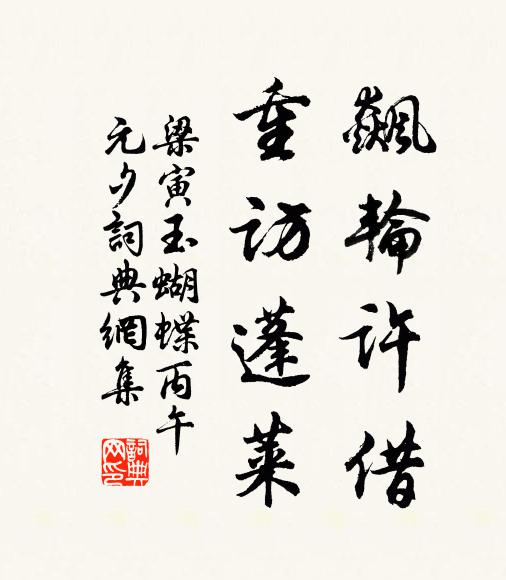 飆輪許借
重訪蓬莱
梁寅玉蝴蝶丙午
元夕詞典網集
詞典
网印